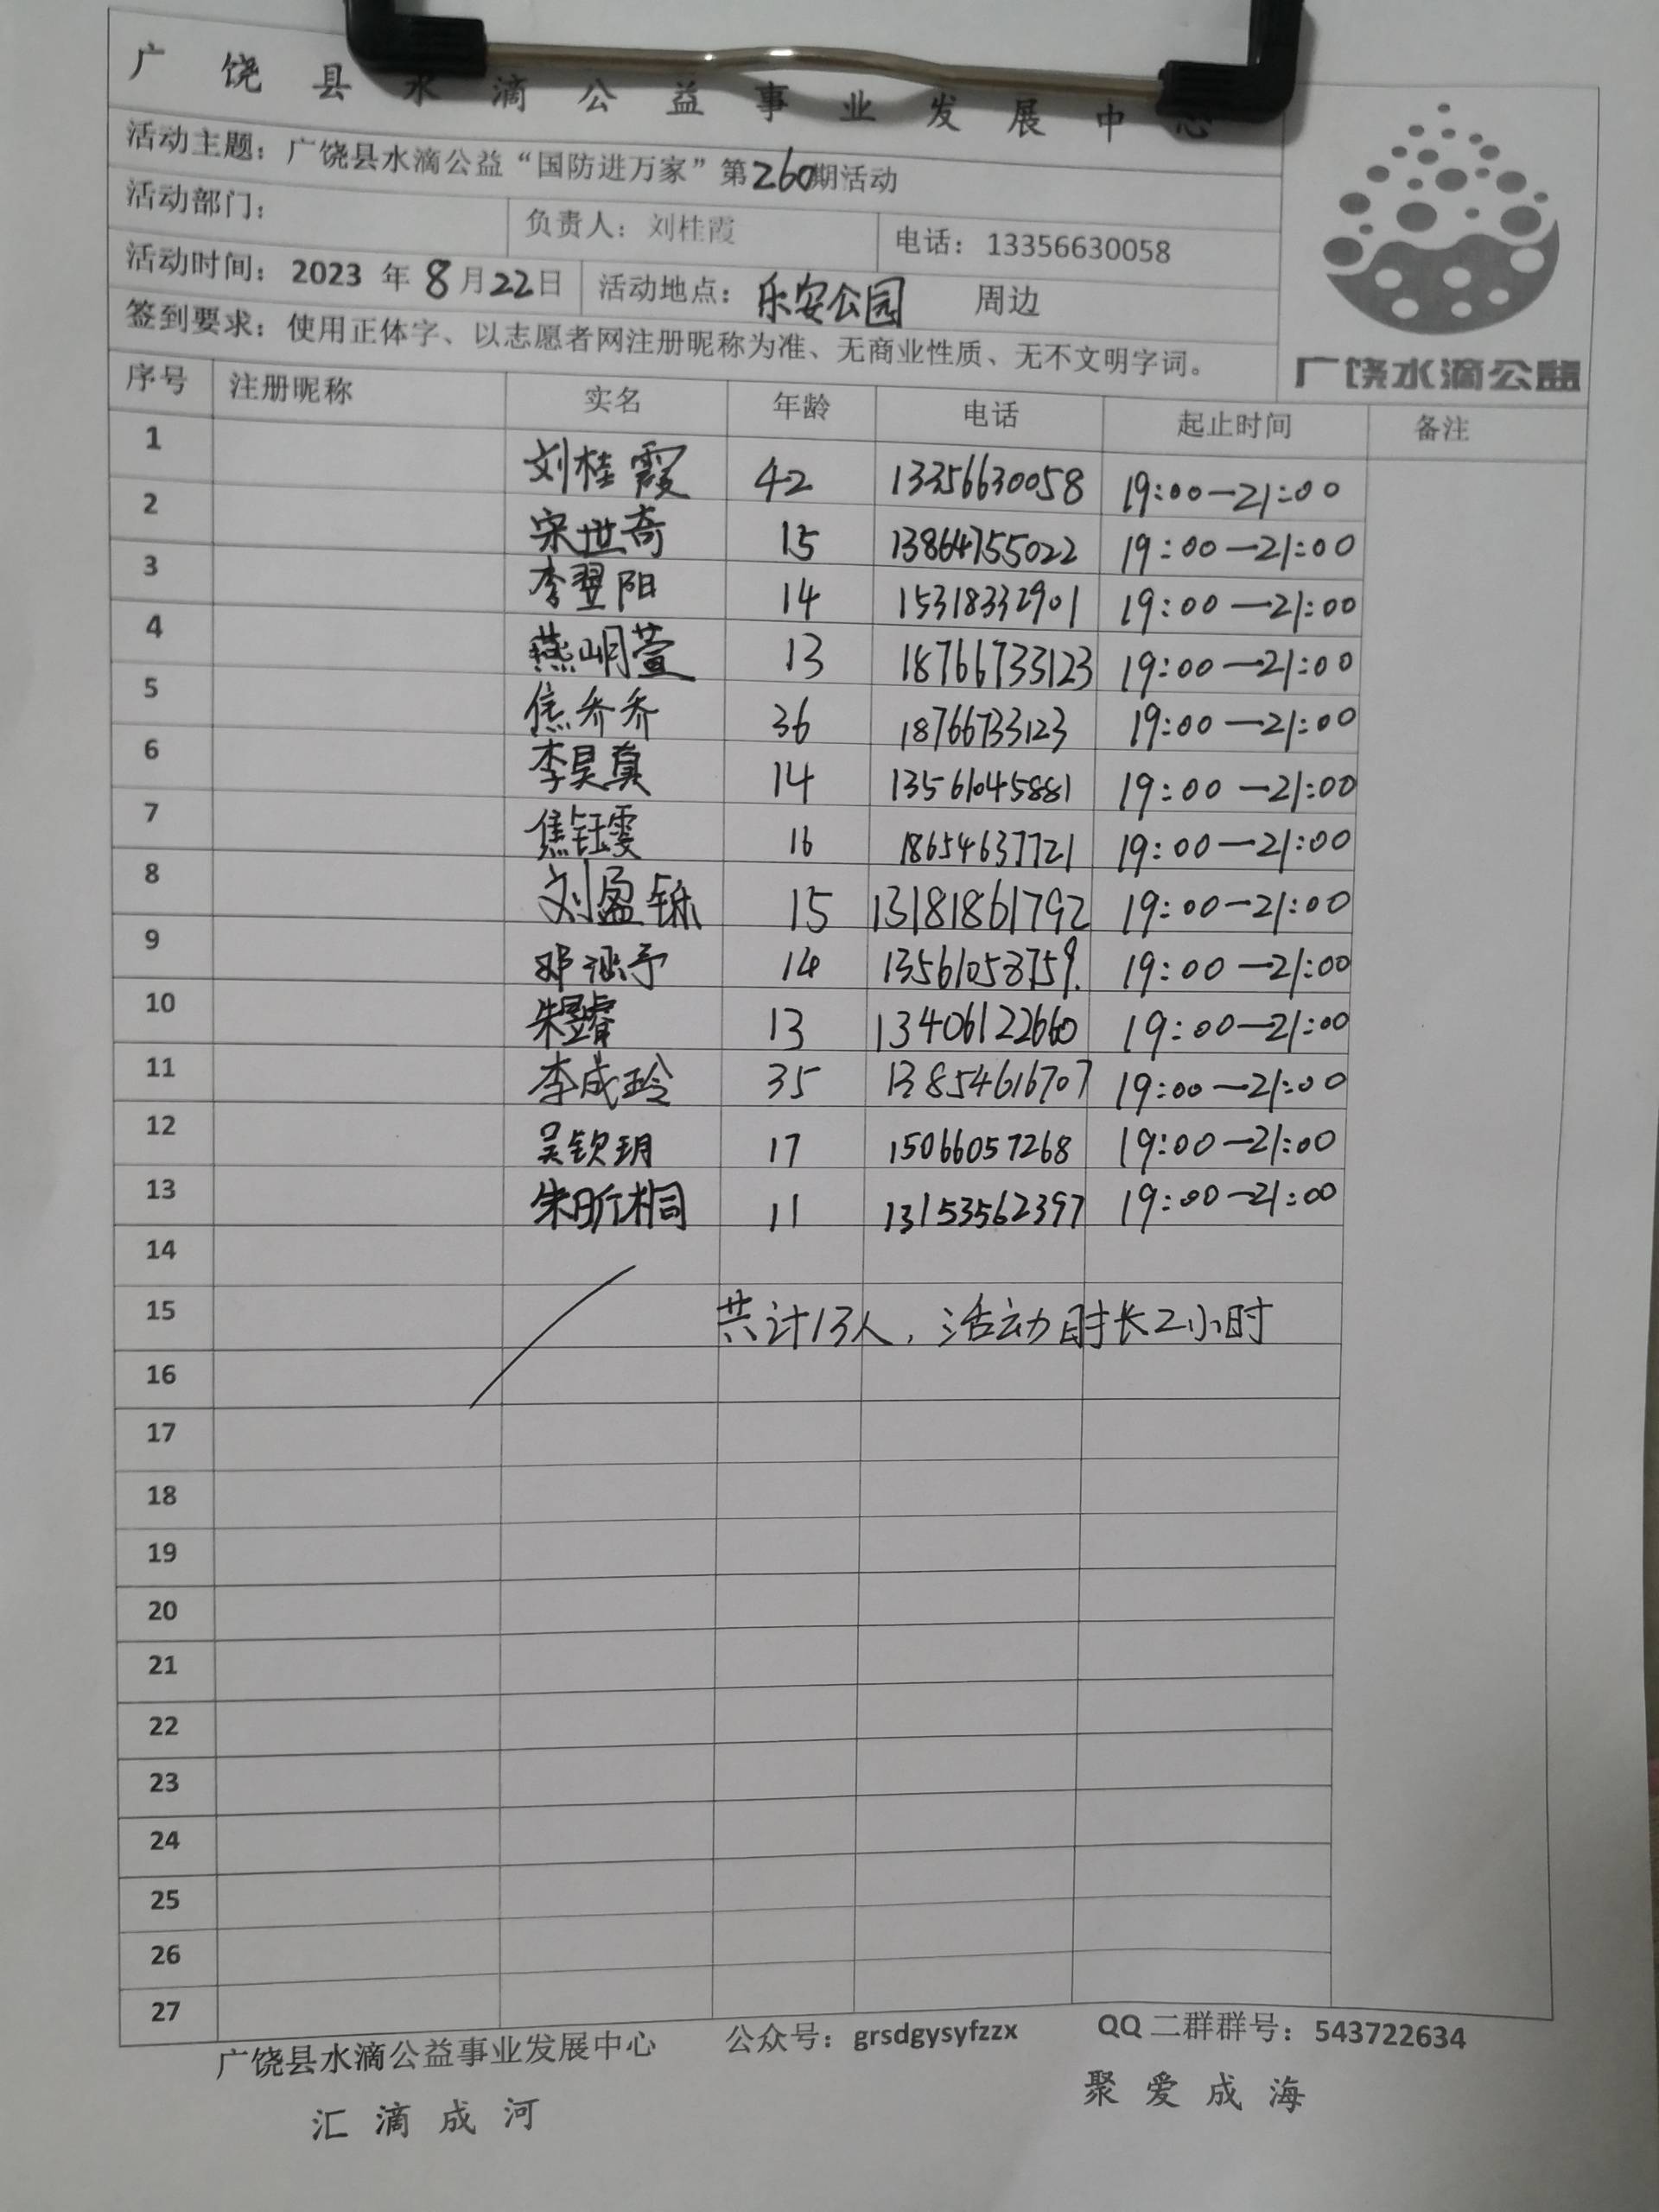 广饶县水滴公益事业发展中心
活动主题：广饶县水滴公益“国防进万家”第260期活动
活动部门：
负责人：刘桂霞 电话：13356630058
活动时间：2023 年 8月22日 活动地点：乐安公园 周边
签到要求：使用正体字、以志愿者网注册昵称为准、无商业性质、无不文明字词。
广饶水滴公益
序号 注册昵称 实名 年龄 电话 起止时间 备注
1 刘桂霞 42 13356630058 19:00—21:00
2 宋世奇 15 13864755022 19:00—21:00
3 李翌阳 14 15318332901 19:00—21:00
4 燕明萱 13 18766733123 19:00—21:00
5 焦乔乔 36 18766733123 19:00—21:00
6 李昊真 14 13561045881 19:00—21:00
7 焦钰雯 16 18654637721 19:00—21:00
8 刘盈铄 15 13181861792 19:00—21:00
9 邓涵予 14 13561058759. 19:00—21:00
10 朱昱睿 13 13406122660 19:00—21:00
11 李成玲 35 13854616707 19:00—21:00
12 吴钦玥 17 15066057268 19:00—21:00
13 朱昕桐 11 13153562397 19:00—21:00
14
15 共计13人，活动时长2小时
16
17
18
19
20
21
22
23
24
25
26
27
广饶县水滴公益事业发展中心 公众号：grsdgysyfzzx QQ 二群群号：543722634
汇滴成河 聚爱成海